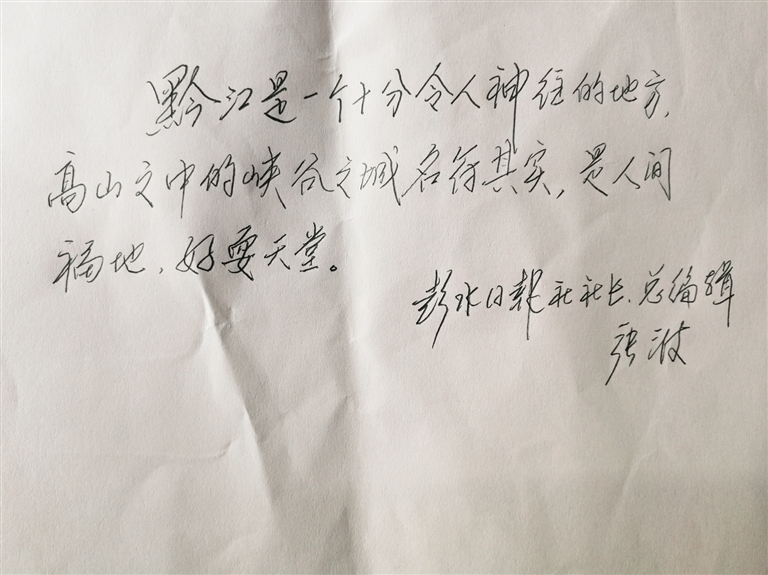 黔江是一个十分令人神往的地方,
高山文中的峡谷之城名符其实,是人间
福地,好耍天堂。
彭水日报社社长、总编辑
张波